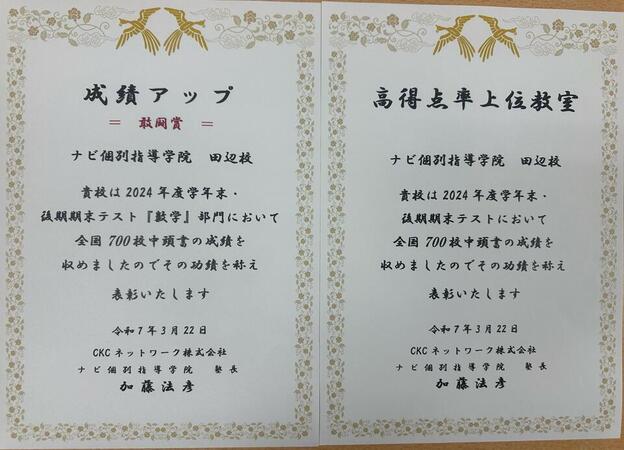 成績アップ
＝ 敢闘賞 ＝
ナビ個別指導学院 田辺校
貴校は2024年度学年末・
後期期末テスト『数学』部門において
全国700校中頭書の成績を
収めましたのでその功績を称え
表彰いたします
令和7年3月22日
CKCネットワーク株式会社
ナビ個別指導学院 塾長
加藤法彦
高得点率上位教室
ナビ個別指導学院 田辺校
貴校は2024年度学年末・
後期期末テストにおいて
全国700校中頭書の成績を
収めましたのでその功績を称え
表彰いたします
令和7年3月22日
CKCネットワーク株式会社
ナビ個別指導学院 塾長
加藤法彦